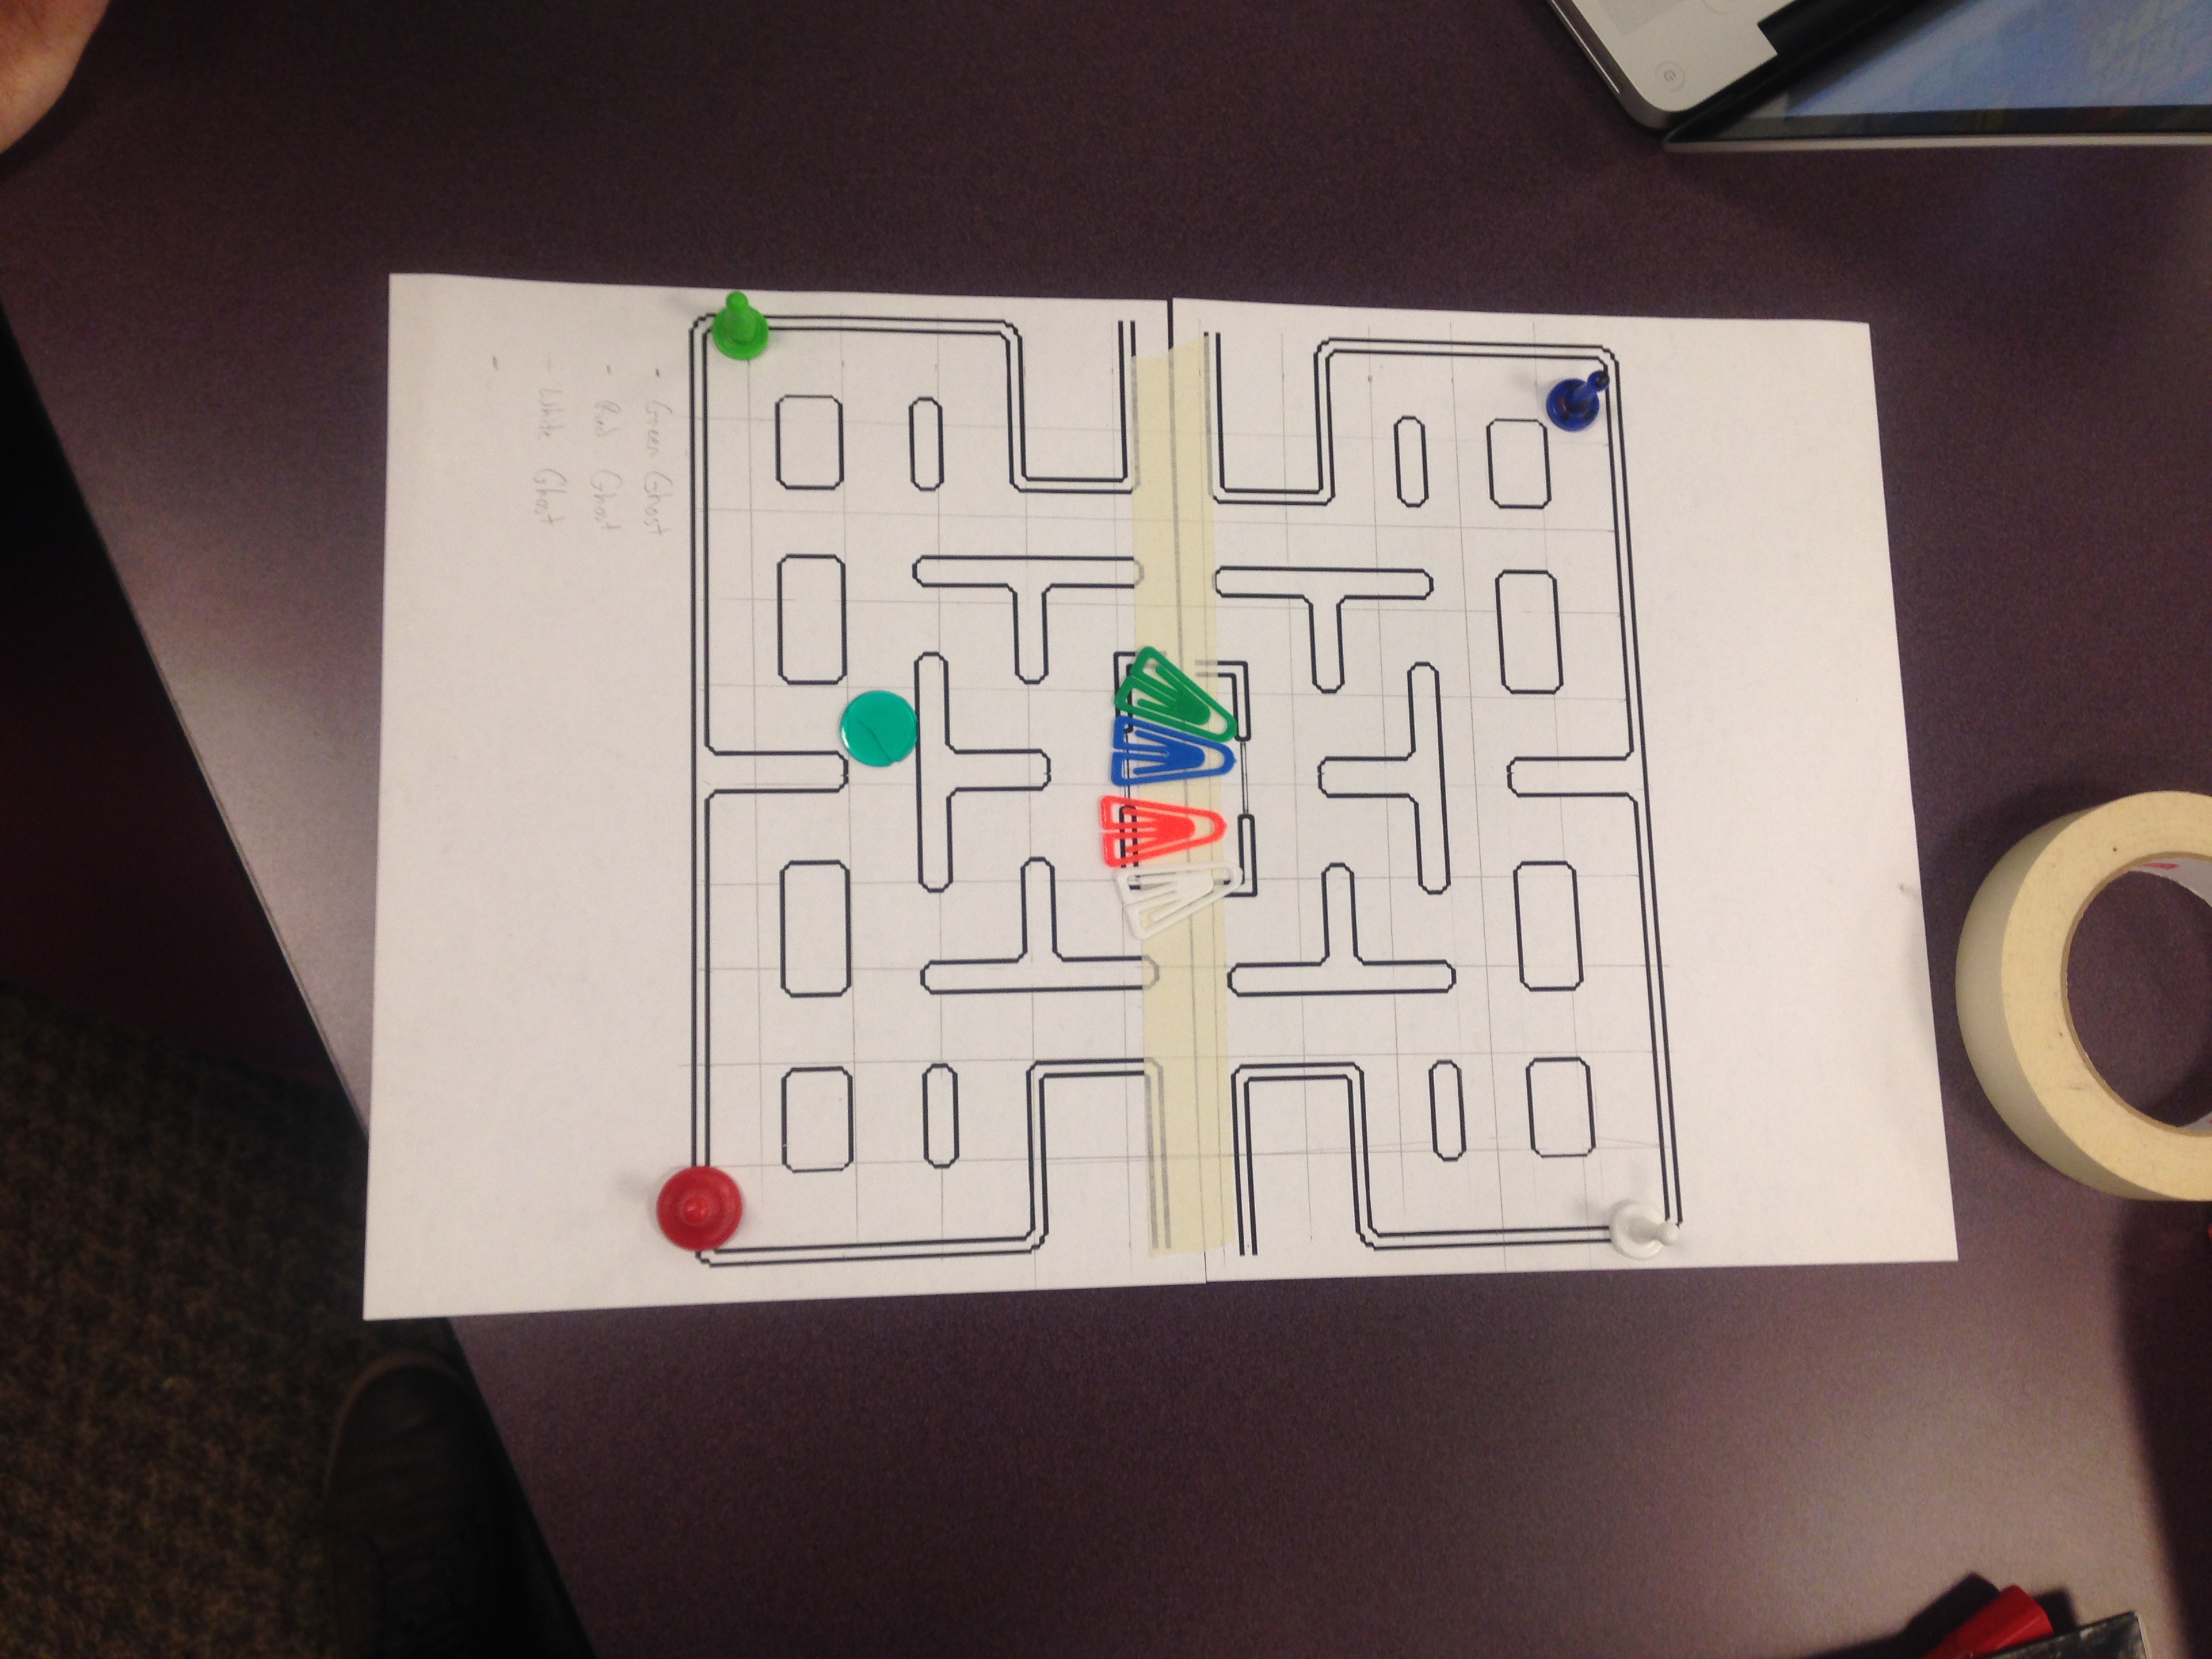 - Green Ghost
- Red Ghost
- White Ghost
-